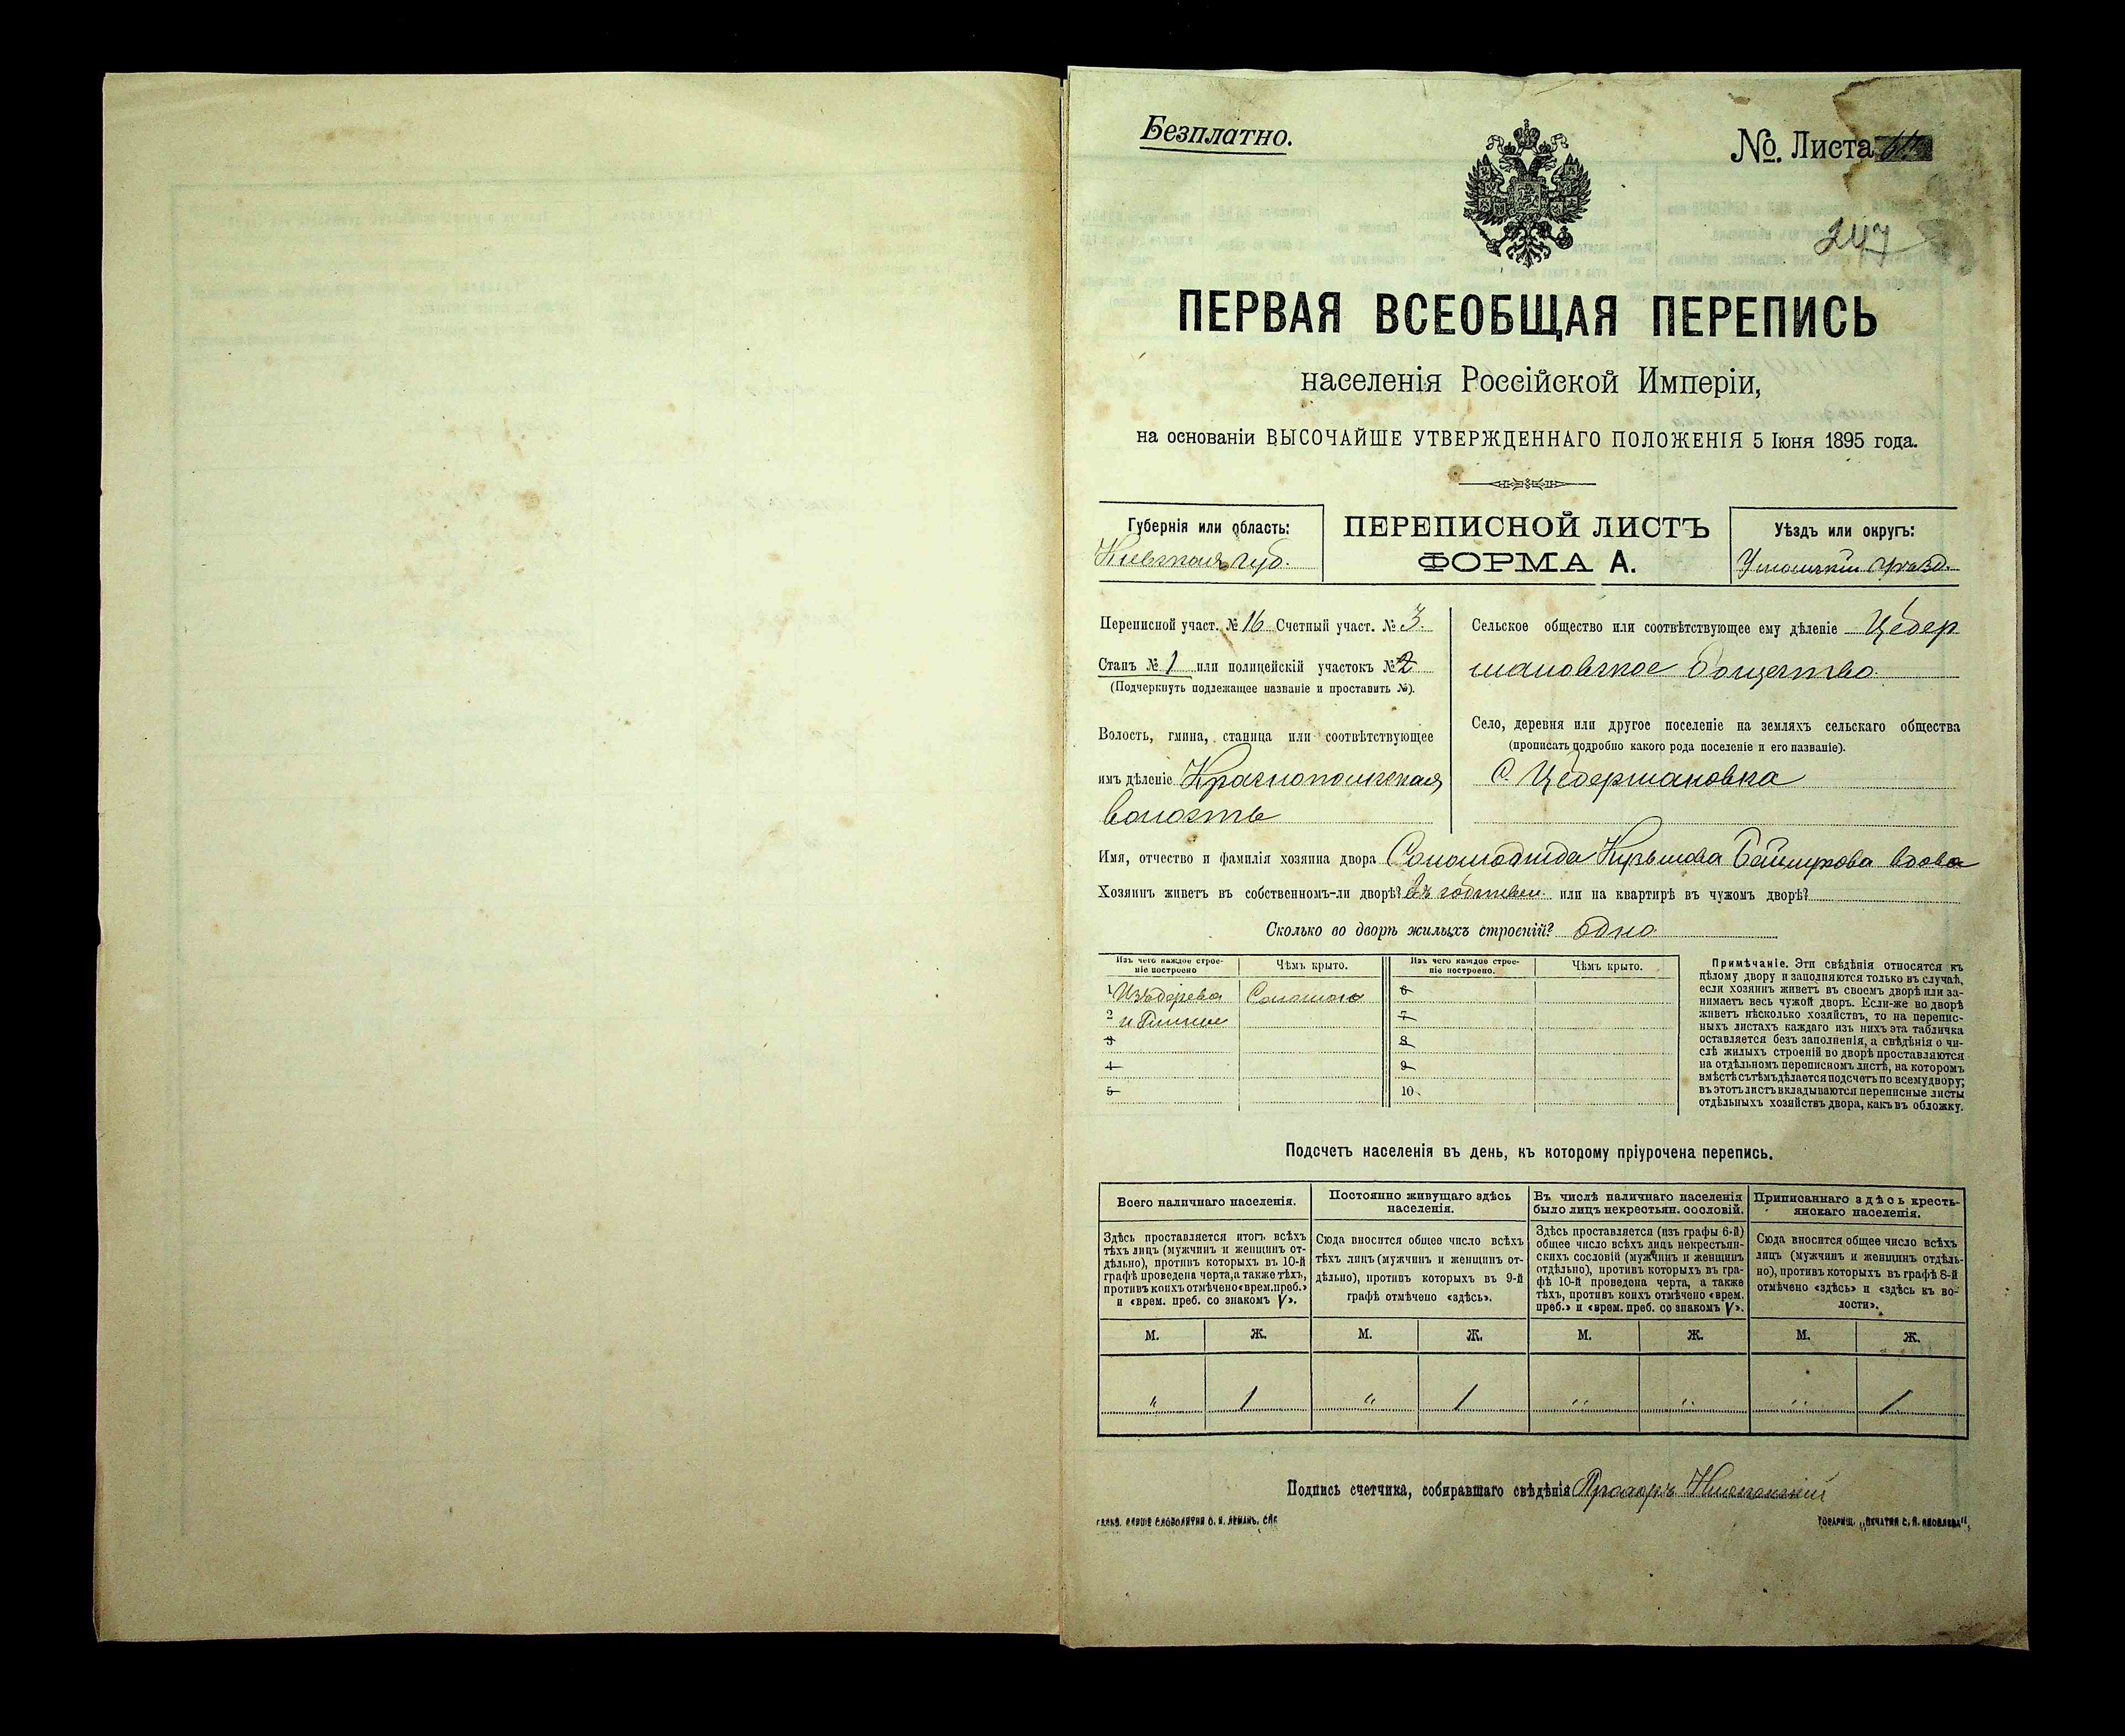 Безплатно.
№. Листа
247
ПЕРВАЯ ВСЕОБЩАЯ ПЕРЕПИСЬ
населенія Россійской Имперіи,
на основаніи ВЫСОЧАЙШЕ УТВЕРЖДЕННАГО ПОЛОЖЕНІЯ 5 Іюня 1895 года.
Губернія или область:
Кіевская губ.
ПЕРЕПИСНОЙ ЛИСТЪ
ФОРМА А.
Уѣздъ или округъ:
Уманскій уѣзд.
Переписной участ. № 16 Счетный участ. № 3.
Станъ № 1 или полицейскій участокъ № 2
(Подчеркнуть подлежащее названіе и проставить №).
Волость, гмина, станица или соотвѣтствующее
имъ дѣленіе Краснопольская
волость
Сельское общество или соотвѣтствующее ему дѣленіе Цебер
мановское общество
Село, деревня или другое поселеніе на земляхъ сельскаго общества
(прописать подробно какого рода поселеніе и его названіе).
С. Цебермановка
Имя, отчество и фамилія хозяина двора Кузьмова вдова
Хозяинъ живетъ въ собственномъ-ли дворѣ? Въ собствен. или на квартирѣ въ чужомъ дворѣ?
Сколько во дворѣ жилыхъ строеній? одно
Изъ чего каждое строе-
ніе построено
Чѣмъ крыто.
Изъ чего каждое строе-
ніе построено.
Чѣмъ крыто.
1 Изъ дерева Соломою 6
2 и глины 7
3 8
4 9
5 10
Примѣчаніе. Эти свѣдѣнія относятся къ
цѣлому двору и заполняются только въ случаѣ,
если хозяинъ живетъ въ своемъ дворѣ или за-
нимаетъ весь чужой дворъ. Если-же во дворѣ
живетъ нѣсколько хозяйствъ, то на перепис-
ныхъ листахъ каждаго изъ нихъ эта табличка
оставляется безъ заполненія, а свѣдѣнія о чи-
слѣ жилыхъ строеній во дворѣ проставляются
на отдѣльномъ переписномъ листѣ, на которомъ
вмѣстѣ съ тѣмъ дѣлается подсчетъ по всему двору;
въ этотъ листъ вкладываются переписные листы
отдѣльныхъ хозяйствъ двора, какъ въ обложку.
Подсчетъ населенія въ день, къ которому пріурочена перепись.
Всего наличнаго населенія.
Постоянно живущаго здѣсь
населенія.
Въ числѣ наличнаго населенія
было лицъ некрестьян. сословій.
Приписаннаго здѣсь кресть-
янскаго населенія.
Здѣсь проставляется итогъ всѣхъ
тѣхъ лицъ (мужчинъ и женщинъ от-
дѣльно), противъ которыхъ въ 10-й
графѣ проведена черта, а также тѣхъ,
противъ коихъ отмѣчено «врем. преб.»
и «врем. преб. со знакомъ V».
Сюда вносится общее число всѣхъ
тѣхъ лицъ (мужчинъ и женщинъ от-
дѣльно), противъ которыхъ въ 9-й
графѣ отмѣчено «здѣсь».
Здѣсь проставляется (изъ графы 6-й)
общее число всѣхъ лицъ некрестьян-
скихъ сословій (мужчинъ и женщинъ
отдѣльно), противъ которыхъ въ гра-
фѣ 10-й проведена черта, а также
тѣхъ, противъ коихъ отмѣчено «врем.
преб.» и «врем. преб. со знакомъ V».
Сюда вносится общее число всѣхъ
лицъ (мужчинъ и женщинъ отдѣль-
но), противъ которыхъ въ графѣ 8-й
отмѣчено «здѣсь» и «здѣсь къ во-
лости».
М. Ж. М. Ж. М. Ж. М. Ж.
" 1 " 1 " " " 1
Подпись счетчика, собиравшаго свѣдѣнія Прохоръ
ТОВАРИЩ. „ПЕЧАТНЯ С. П. ЯКОВЛЕВА“.